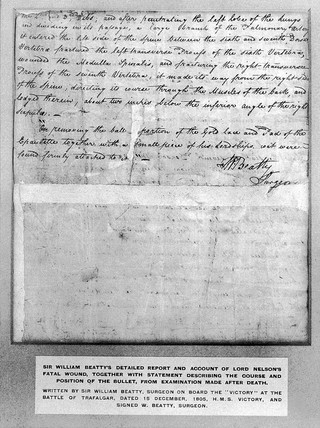 and 3d Ribs, and after penetrating the left lobe of the lungs
and dividing in its passage, a large branch of the Pulmonary Artery
it entered the left side of the spine between the sixth and seventh Dorsal
Vertebra, fractured the left transverse Process of the sixth Vertebra,
wounded the Medulla Spinalis, and fracturing the right transverse
Process of the seventh Vertebra, it made its way from the right side
of the spine, directing its course through the Muscles of the back, and
lodged therein, about two inches below the inferior angle of the right
Scapula. —
On removing the ball a portion of the Gold lace and Pad of the
Epaulette together with a small piece of his Lordships coat were
found firmly attached to it. —
W Beatty
Surgeon
SIR WILLIAM BEATTY'S DETAILED REPORT AND ACCOUNT OF LORD NELSON'S
FATAL WOUND, TOGETHER WITH STATEMENT DESCRIBING THE COURSE AND
POSITION OF THE BULLET, FROM EXAMINATION MADE AFTER DEATH.
WRITTEN BY SIR WILLIAM BEATTY, SURGEON ON BOARD THE "VICTORY" AT THE
BATTLE OF TRAFALGAR, DATED 15 DECEMBER, 1805, H.M.S. VICTORY, AND
SIGNED W. BEATTY, SURGEON.